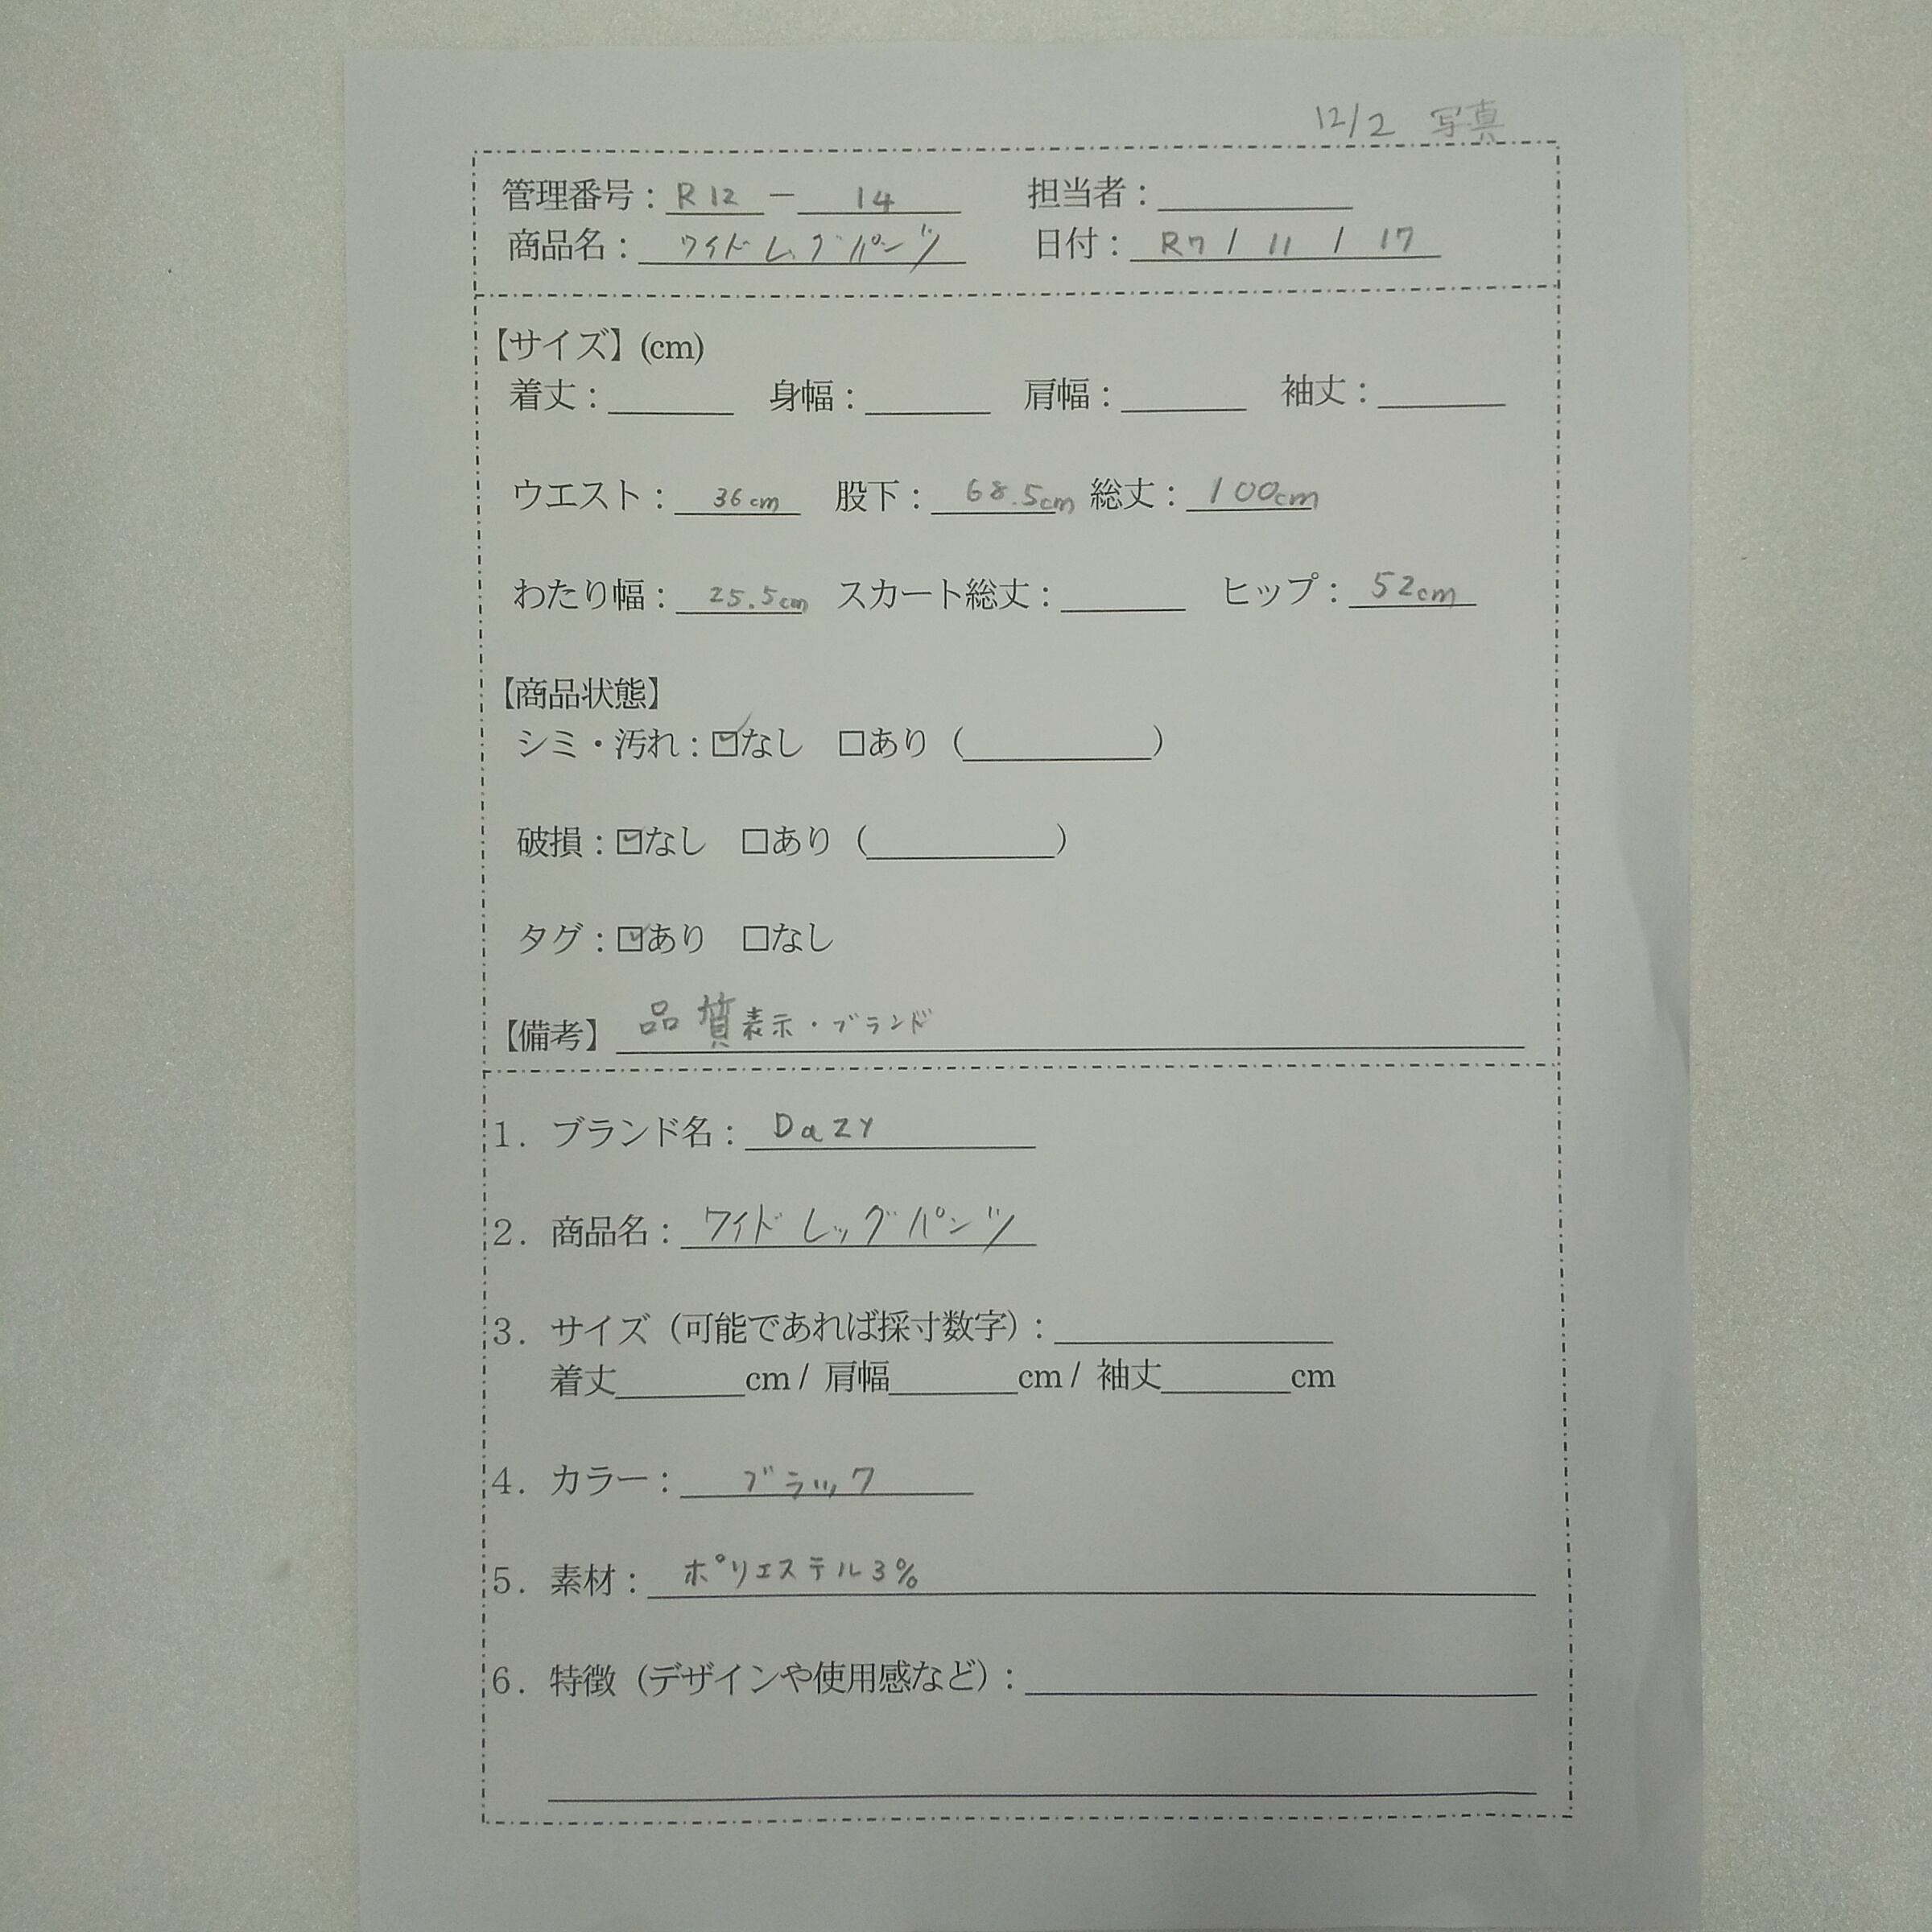 12/2 写真
管理番号：R12 － 14 担当者：
商品名：ワイドレッグパンツ 日付：R7 / 11 / 17
【サイズ】(cm)
着丈： 身幅： 肩幅： 袖丈：
ウエスト：36cm 股下：68.5cm 総丈：100cm
わたり幅：25.5cm スカート総丈： ヒップ：52cm
【商品状態】
シミ・汚れ：☑なし □あり（ ）
破損：☑なし □あり（ ）
タグ：☑あり □なし
【備考】品質表示・ブランド
1．ブランド名：Dazy
2．商品名：ワイドレッグパンツ
3．サイズ（可能であれば採寸数字）：
着丈 cm / 肩幅 cm / 袖丈 cm
4．カラー：ブラック
5．素材：ポリエステル3%
6．特徴（デザインや使用感など）：